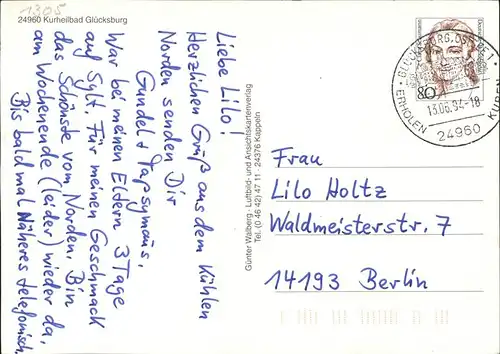 1305
24960 Kurheilbad Glücksburg
Liebe Lilo!
Herzlichen Gruß aus dem Kühlen
Norden senden Dir
Gundel +
War bei meinen Eltern 3 Tage
auf Sylt. Für meinen Geschmack
das Schönste vom Norden. Bin
am Wochenende (leider) wieder da.
Bis bald mal Näheres telefonisch.
Günter Walberg · Luftbild- und Ansichtskartenverlag
Tel. (0 46 42) 47 11 · 24376 Kappeln
80
GLÜCKSBURG, OSTSEE 1
13.06.94-18
24960
ERHOLEN KUREN
Frau
Lilo Holtz
Waldmeisterstr. 7
14193 Berlin